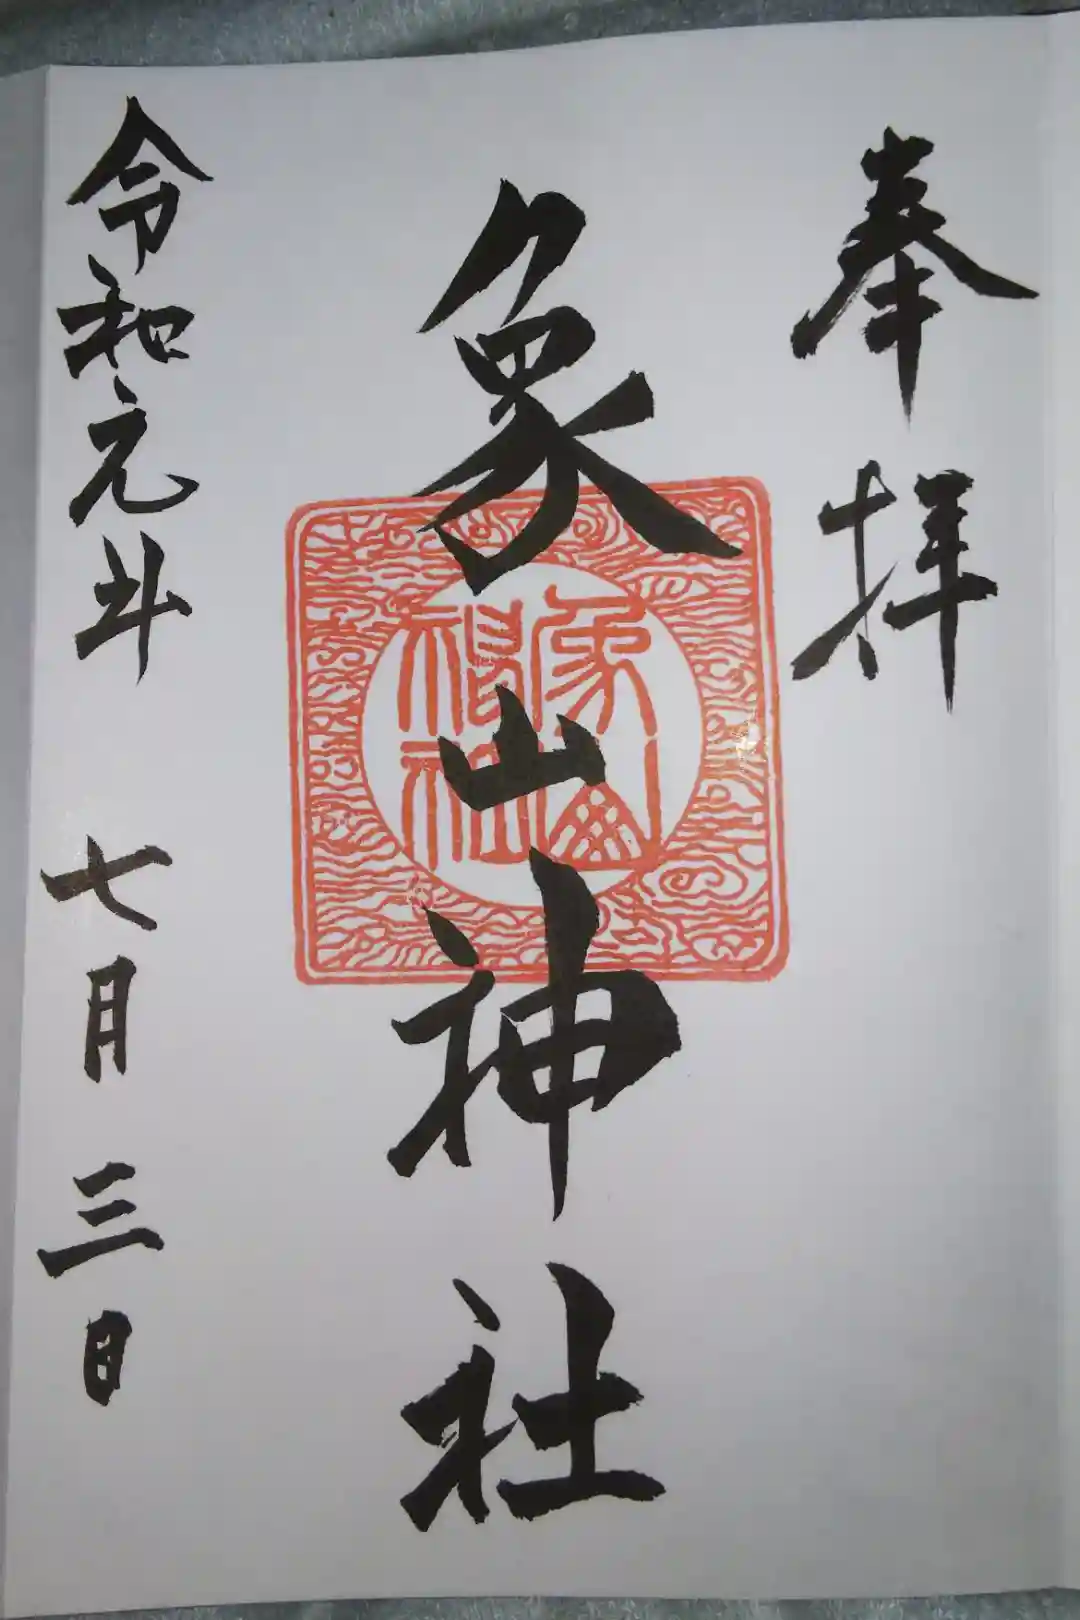 奉拝
象山神社
象山
神社
令和元年 七月三日